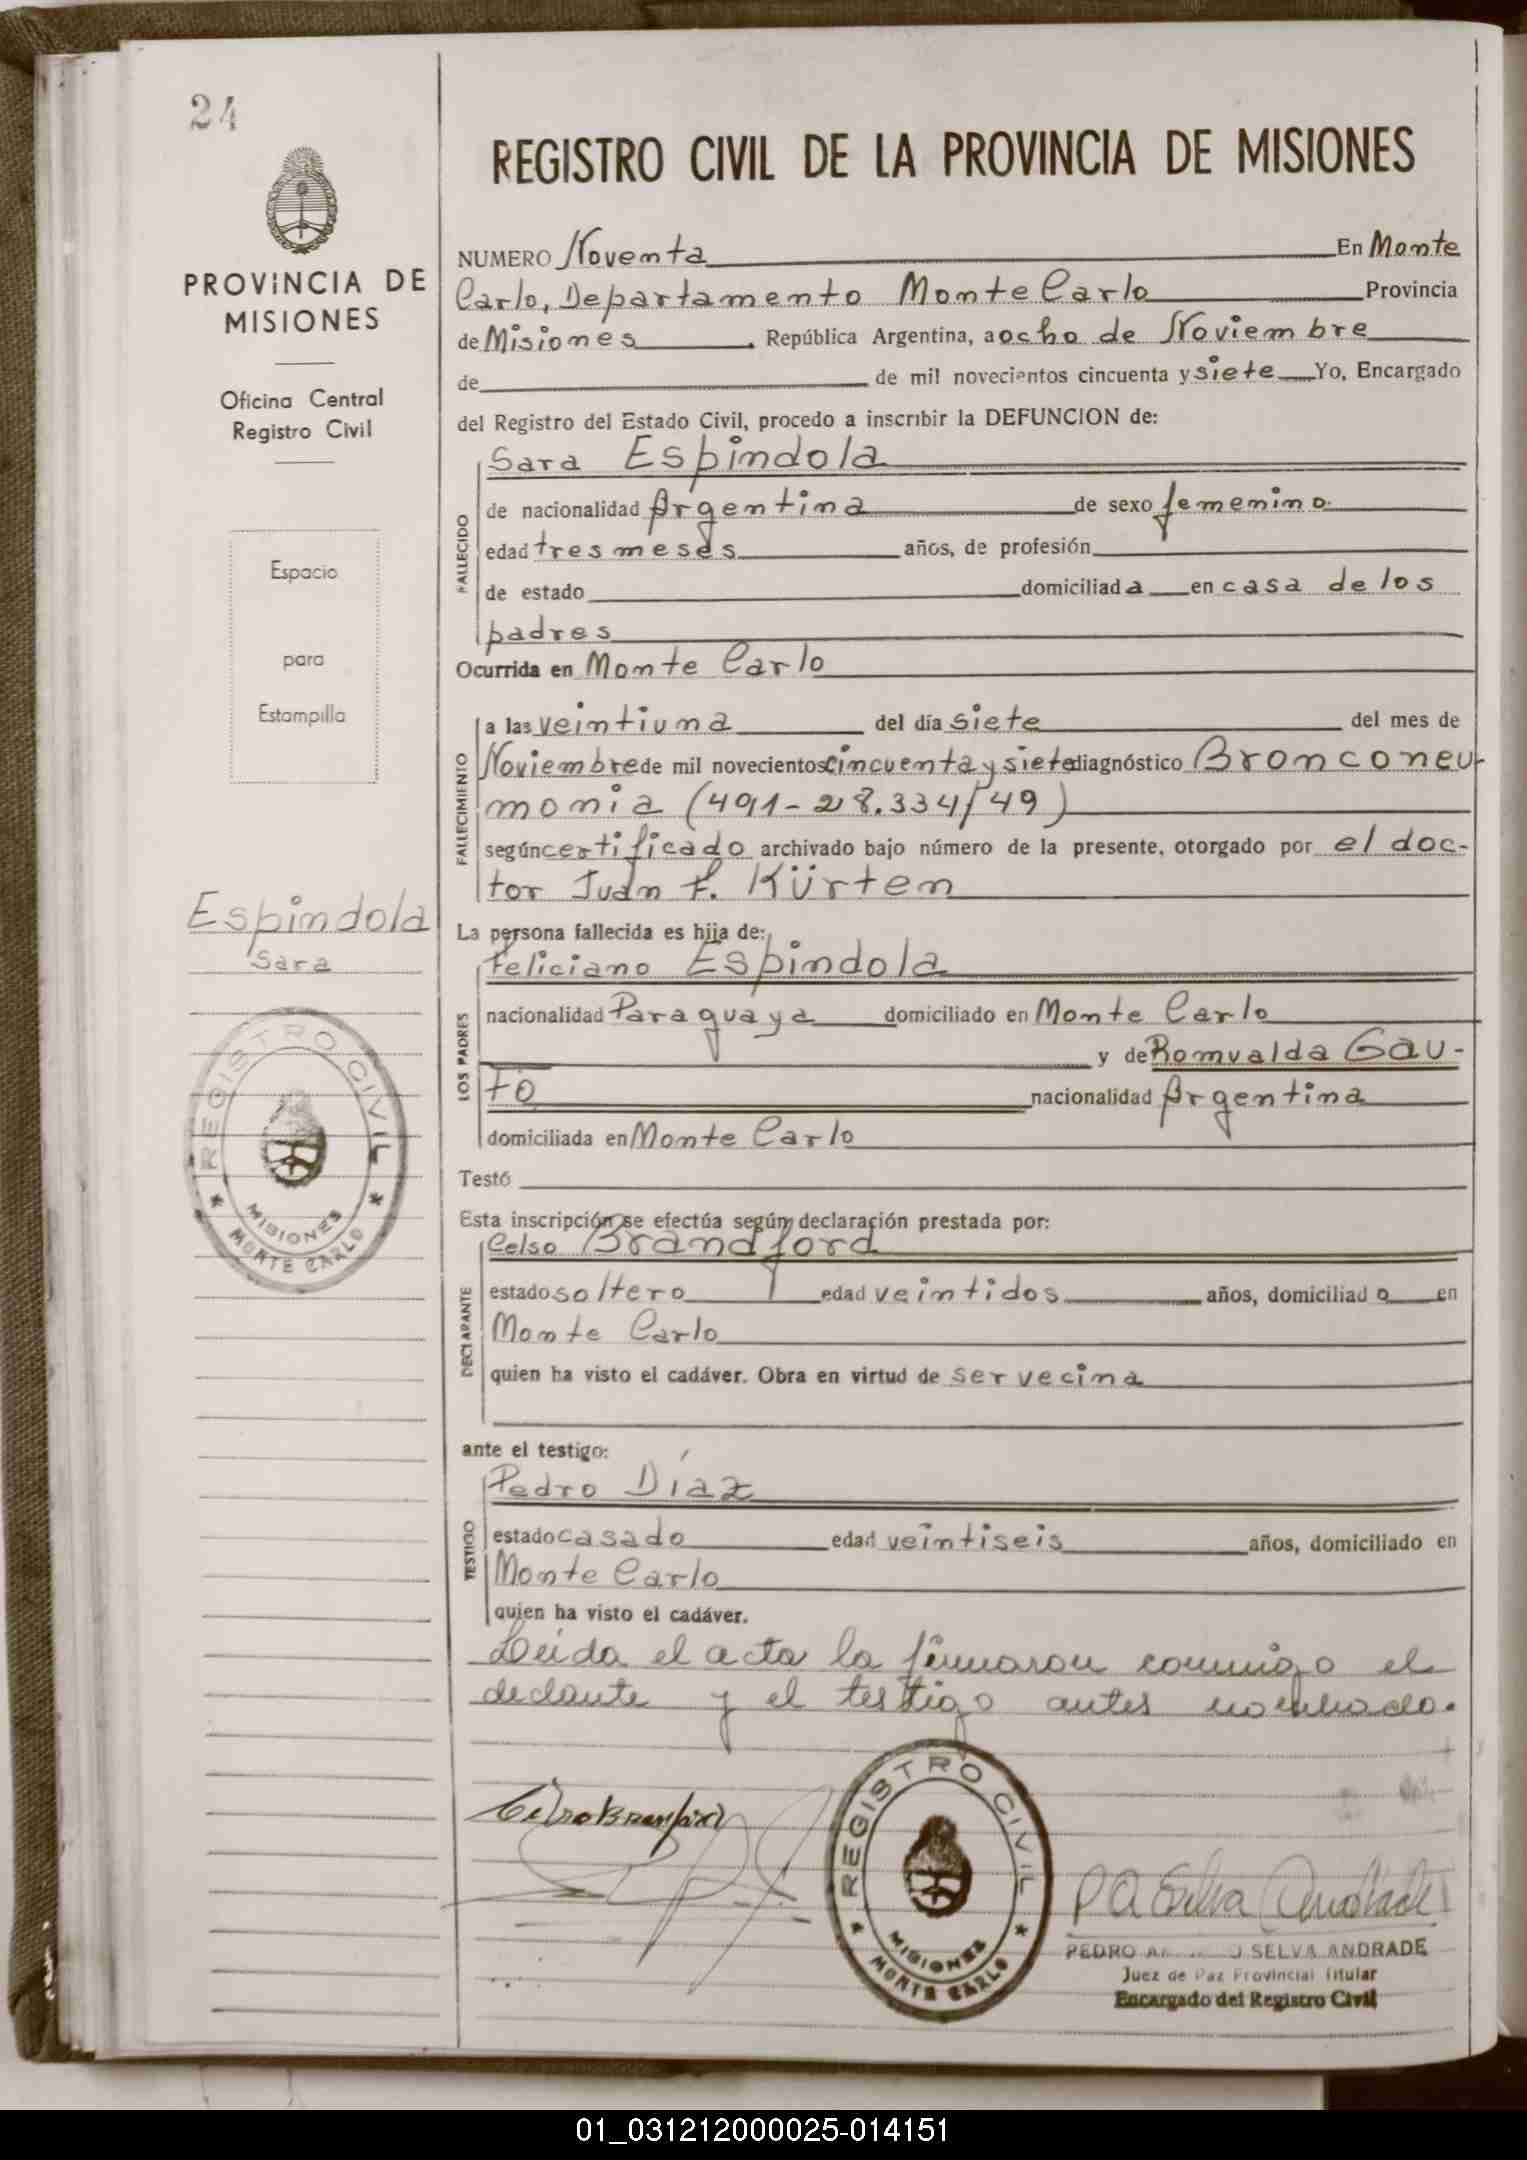 24
PROVINCIA DE
MISIONES
Oficina Central
Registro Civil
Espacio
para
Estampilla
Espindola
Sara
REGISTRO CIVIL
MISIONES
* MONTE CARLO *
REGISTRO CIVIL DE LA PROVINCIA DE MISIONES
NUMERO Noventa En Monte
Carlo, Departamento Monte Carlo Provincia
de Misiones, República Argentina, a ocho de Noviembre
de de mil novecientos cincuenta y siete Yo, Encargado
del Registro del Estado Civil, procedo a inscribir la DEFUNCION de:
FALLECIDO
Sara Espindola
de nacionalidad Argentina de sexo femenino
edad tres meses años, de profesión
de estado domiciliada en casa de los
padres
Ocurrida en Monte Carlo
FALLECIMIENTO
a las veintiuna del día siete del mes de
Noviembre de mil novecientos cincuenta y siete diagnóstico Bronconeu-
monia (491-28.334/49)
según certificado archivado bajo número de la presente, otorgado por el doc-
tor Juan F. Kürten
La persona fallecida es hija de:
LOS PADRES
Feliciano Espindola
nacionalidad Paraguaya domiciliado en Monte Carlo
y de Romualda Gau-
to nacionalidad Argentina
domiciliada en Monte Carlo
Testó
Esta inscripción se efectúa según declaración prestada por:
DECLARANTE
Celso Brandford
estado soltero edad veintidos años, domiciliado en
Monte Carlo
quien ha visto el cadáver. Obra en virtud de ser vecina
ante el testigo:
TESTIGO
Pedro Díaz
estado casado edad veintiseis años, domiciliado en
Monte Carlo
quien ha visto el cadáver.
Leida el acta la firmaron conmigo el
declante y el testigo antes nombrado.
REGISTRO CIVIL
MISIONES
* MONTE CARLO *
P A Selva Andrade
PEDRO SELVA ANDRADE
Juez de Paz Provincial Titular
Encargado del Registro Civil
01_031212000025-014151